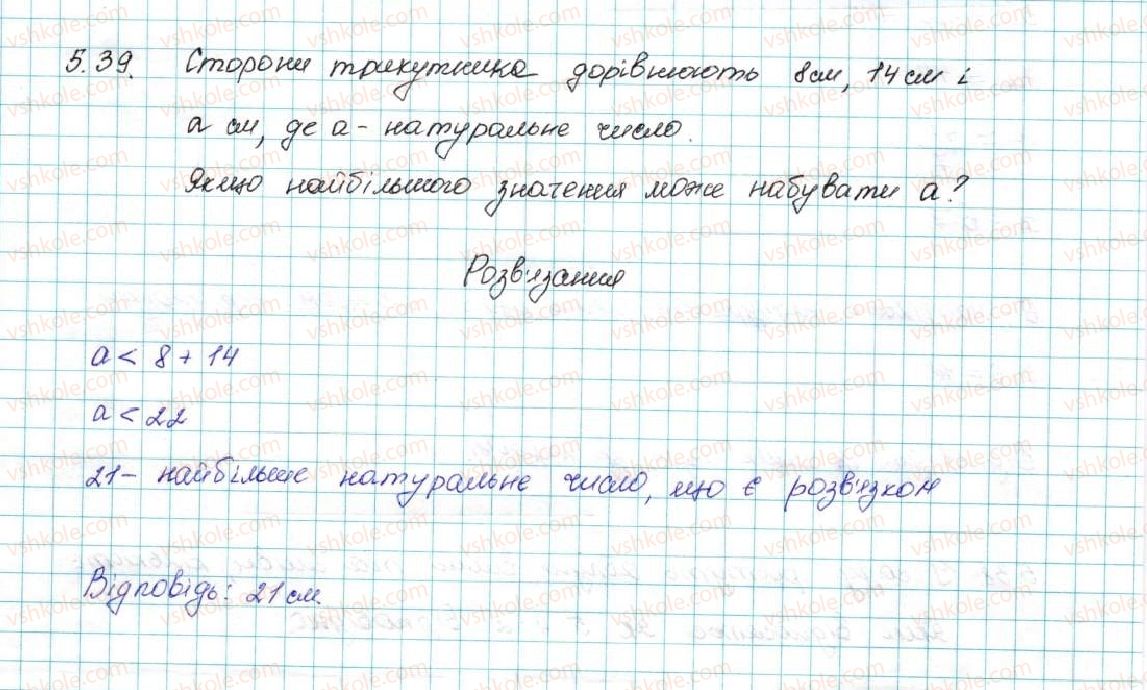 5.39. Сторони трикутника дорівнюють 8см, 14см і
a см, де a - натуральне число.
Якщо найбільшого значення може набувати a?
Розв'язання
a < 8 + 14
a < 22
21 - найбільше натуральне число, що є розв'язком
Відповідь: 21см.